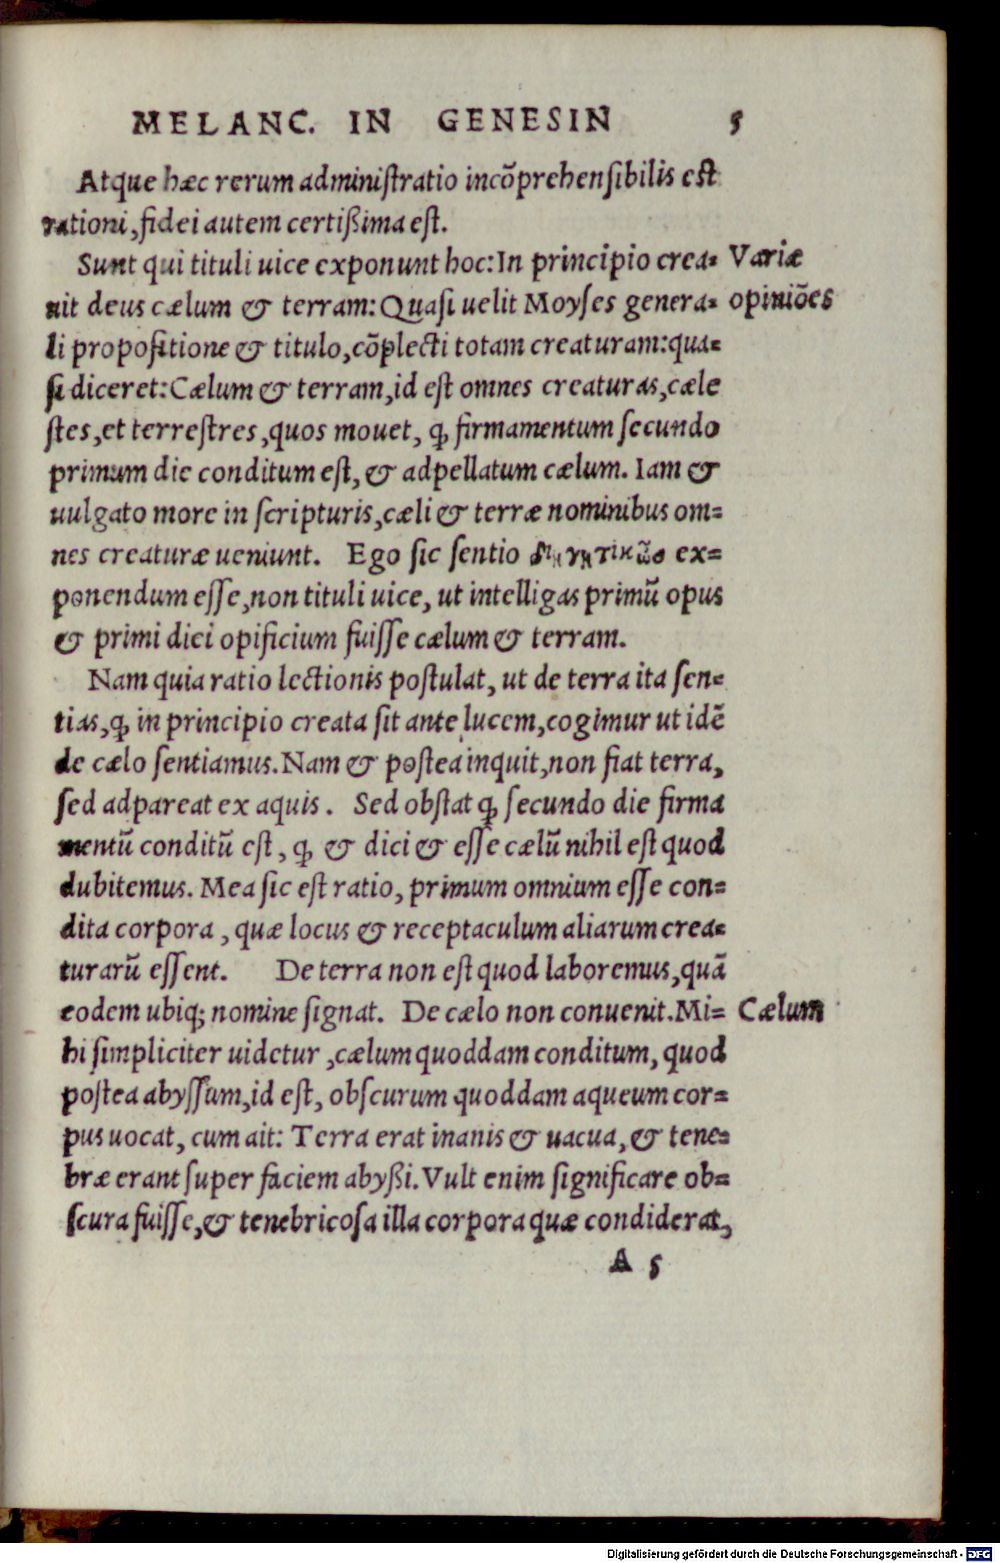 MELANC. IN GENESIN 5
Atque hæc rerum administratio incõprehensibilis est
rationi, fidei autem certißima est.
Sunt qui tituli uice exponunt hoc: In principio crea= Variæ
uit deus cælum & terram: Quasi uelit Moyses genera= opiniões
li propositione & titulo, cõplecti totam creaturam: qua=
si diceret: Cælum & terram, id est omnes creaturas, cæle
stes, et terrestres, quos mouet, ꝙ firmamentum secundo
primum die conditum est, & adpellatum cælum. Iam &
uulgato more in scripturis, cæli & terræ nominibus om=
nes creaturæ ueniunt. Ego sic sentio ex=
ponendum esse, non tituli uice, ut intelligas primũ opus
& primi diei opificium fuisse cælum & terram.
Nam quia ratio lectionis postulat, ut de terra ita sen=
tias, ꝙ in principio creata sit ante lucem, cogimur ut idẽ
de cælo sentiamus. Nam & postea inquit, non fiat terra,
sed adpareat ex aquis. Sed obstat ꝙ secundo die firma
mentũ conditũ est, ꝙ & dici & esse cælũ nihil est quod
dubitemus. Mea sic est ratio, primum omnium esse con=
dita corpora, quæ locus & receptaculum aliarum crea=
turarũ essent. De terra non est quod laboremus, quã
eodem ubiq; nomine signat. De cælo non conuenit. Mi= Cælum
hi simpliciter uidetur, cælum quoddam conditum, quod
postea abyssum, id est, obscurum quoddam aqueum cor=
pus uocat, cum ait: Terra erat inanis & uacua, & tene=
bræ erant super faciem abyßi. Vult enim significare ob=
scura fuisse, & tenebricosa illa corpora quæ condiderat,
A 5
Digitalisierung gefördert durch die Deutsche Forschungsgemeinschaft - DFG